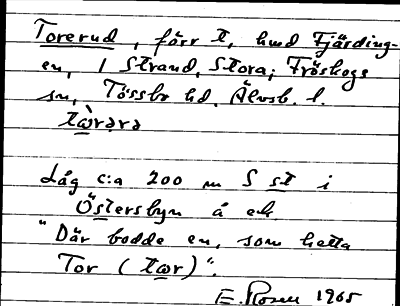 Torerud, förr t, hmd Fjärding-
en, 1 Strand, Stora; Fröskogs
sn, Tössbo hd. Älvsb. l.
Låg c:a 200 m S st i
Östersbyn å ek
"Där bodde en, som hette
Tor (tωr)".
E. Rosen 1965